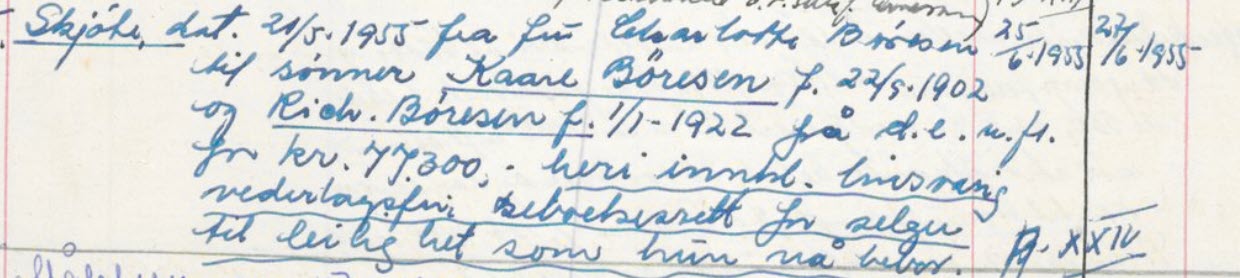 Skjöte, dat. 21/5.1955 fra fru Charlotte Böresen 25/6.1955 27/6.1955
til sönner Kaare Böresen f. 22/9.1902
og Rich. Böresen f. 1/1-1922 på d.e. m.fl.
for kr. 77.300,- heri innkl. livsvarig
vederlagsfri beboelsesrett for selger
til leilighet som hun nå bebor. XXIV